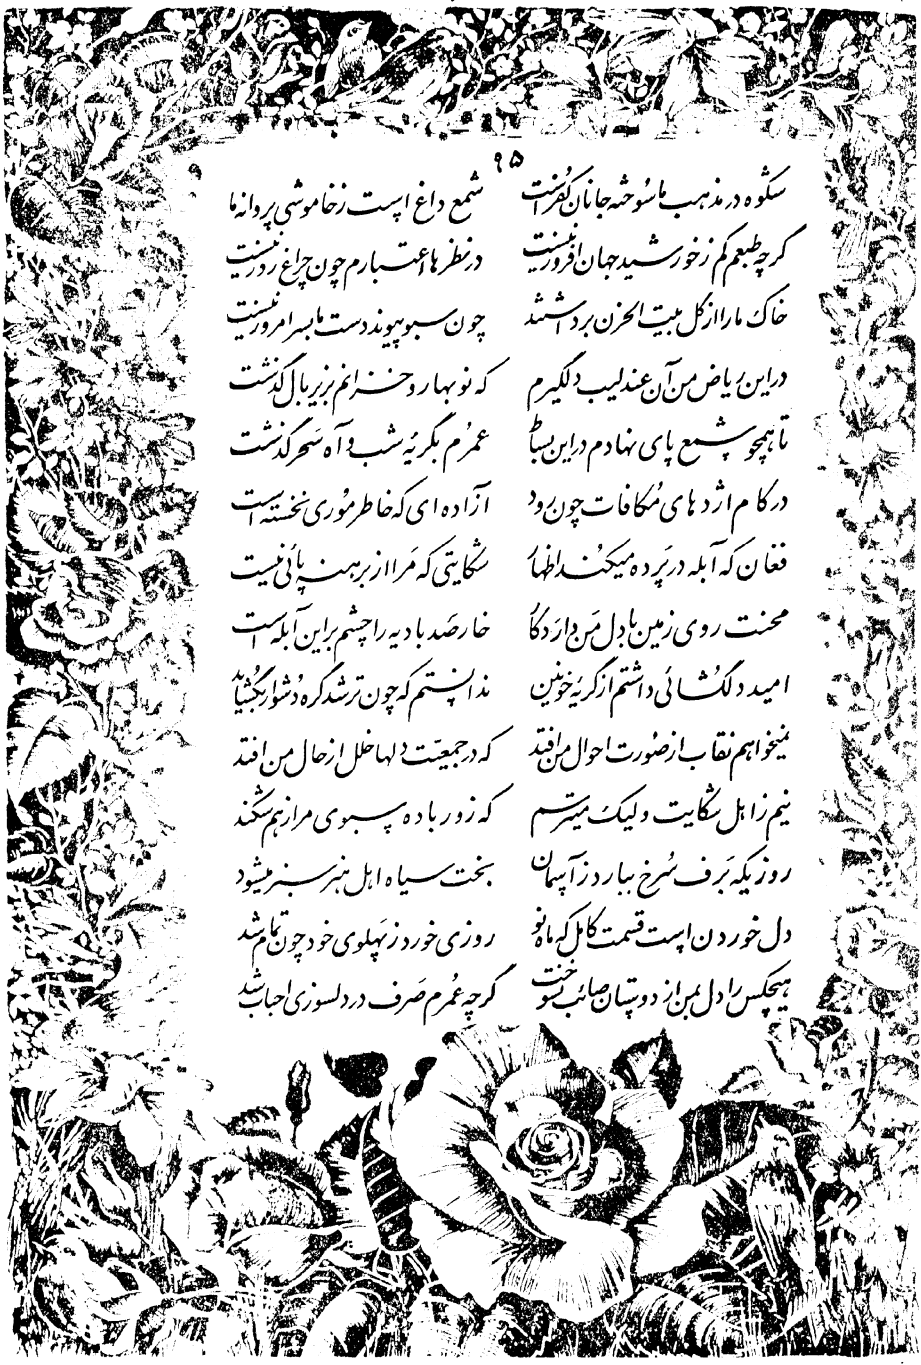 ۹۵
شکوه در مذهب ما سوخته جانان کفر است    شمع داغ است ز خاموشی پروانه ما
گرچه طبعم کم ز خورشید جهان افروز نیست    در نظرها اعتبارم چون چراغ روز نیست
خاک ما را از گل بیت الحزن برداشتند    چون سبو پیوند دست ما بسر امروز نیست
در این ریاض من آن عندلیب دلگیرم    که نوبهار و خزانم بزیر بال گذشت
تا همچو شمع پای نهادم در این بساط    عمرم بگریه شب و آه سحر گذشت
در کام اژدهای مکافات چون رود    آزاده ای که خاطر موری نخسته است
فغان که آبله در پرده میکند اظهار    شکایتی که مرا از برهنه پائی نیست
محنت روی زمین با دل من دارد کار    خار صد بادیه را چشم بر این آبله است
امید دلگشائی داشتم از گریه خونین    ندانستم که چون تر شد گره دشوار بگشاید
نمیخواهم نقاب از صورت احوال من افتد    که در جمعیت دلها خلل از حال من افتد
نیم ز اهل شکایت ولیک میترسم    که زور باده سبوی مرا ز هم شکند
روزیکه برف سرخ ببارد ز آسمان    بخت سیاه اهل هنر سبز میشود
دل خوردن است قسمت کامل که ماه نو    روزی خورد ز پهلوی خود چون تمام شد
هیچکس را دل بمن از دوستان صائب نسوخت    گرچه عمرم صرف در دلسوزی احباب شد